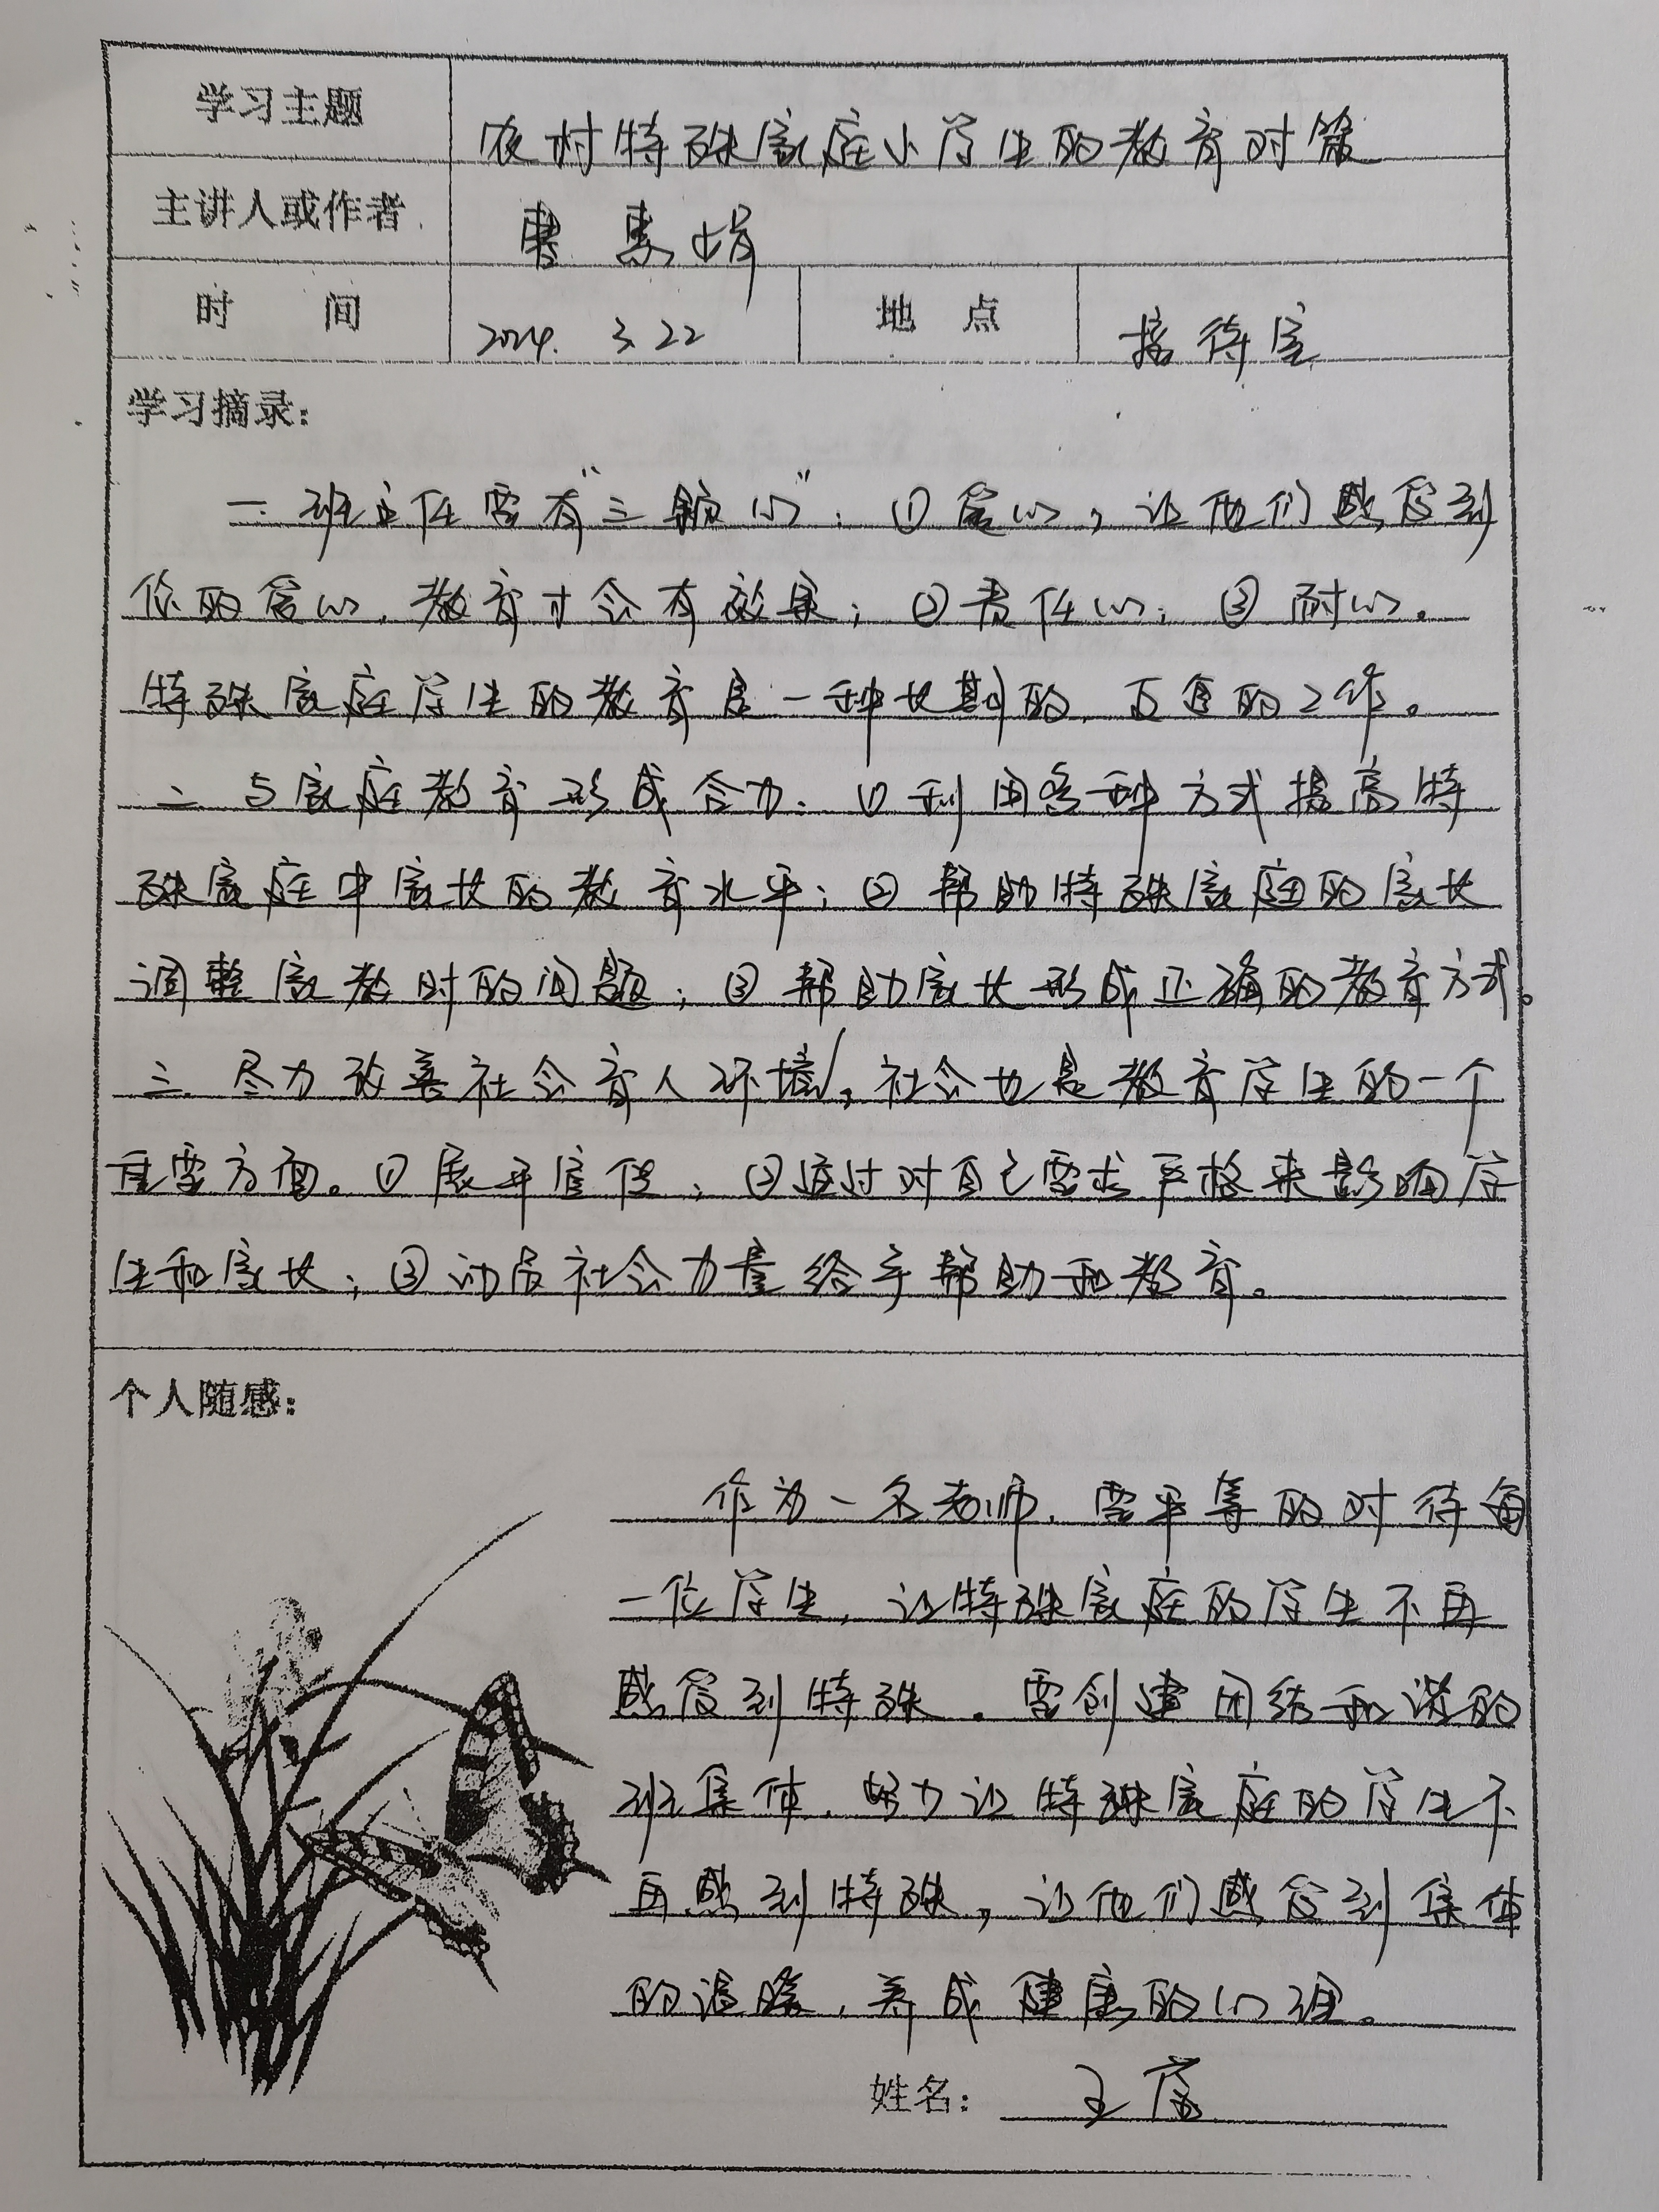 学习主题 农村特殊家庭小学生的教育对策
主讲人或作者 曹 娟
时 间 2024. 3. 22 地 点 接待室
学习摘录：
一. 班主任需有“三颗心”. ①爱心，让他们感受到
你的爱心，教育才会有效果；②责任心；③耐心。
特殊家庭学生的教育是一种长期的，反复的工作。
二. 与家庭教育形成合力. ①利用各种方式提高特
殊家庭中家长的教育水平；②帮助特殊家庭的家长
调整家教时的问题；③帮助家长形成正确的教育方式。
三. 尽力改善社会育人环境，社会也是教育学生的一个
重要方面。①展开宣传；②通过对自己要求严格来影响学
生和家长；③动员社会力量给予帮助和教育。
个人随感：
作为一名老师，需平等的对待每
一位学生，让特殊家庭的学生不再
感受到特殊。需创建团结和谐的
班集体，努力让特殊家庭的学生不
再感到特殊，让他们感受到集体
的温暖，养成健康的心理。
姓名： 王